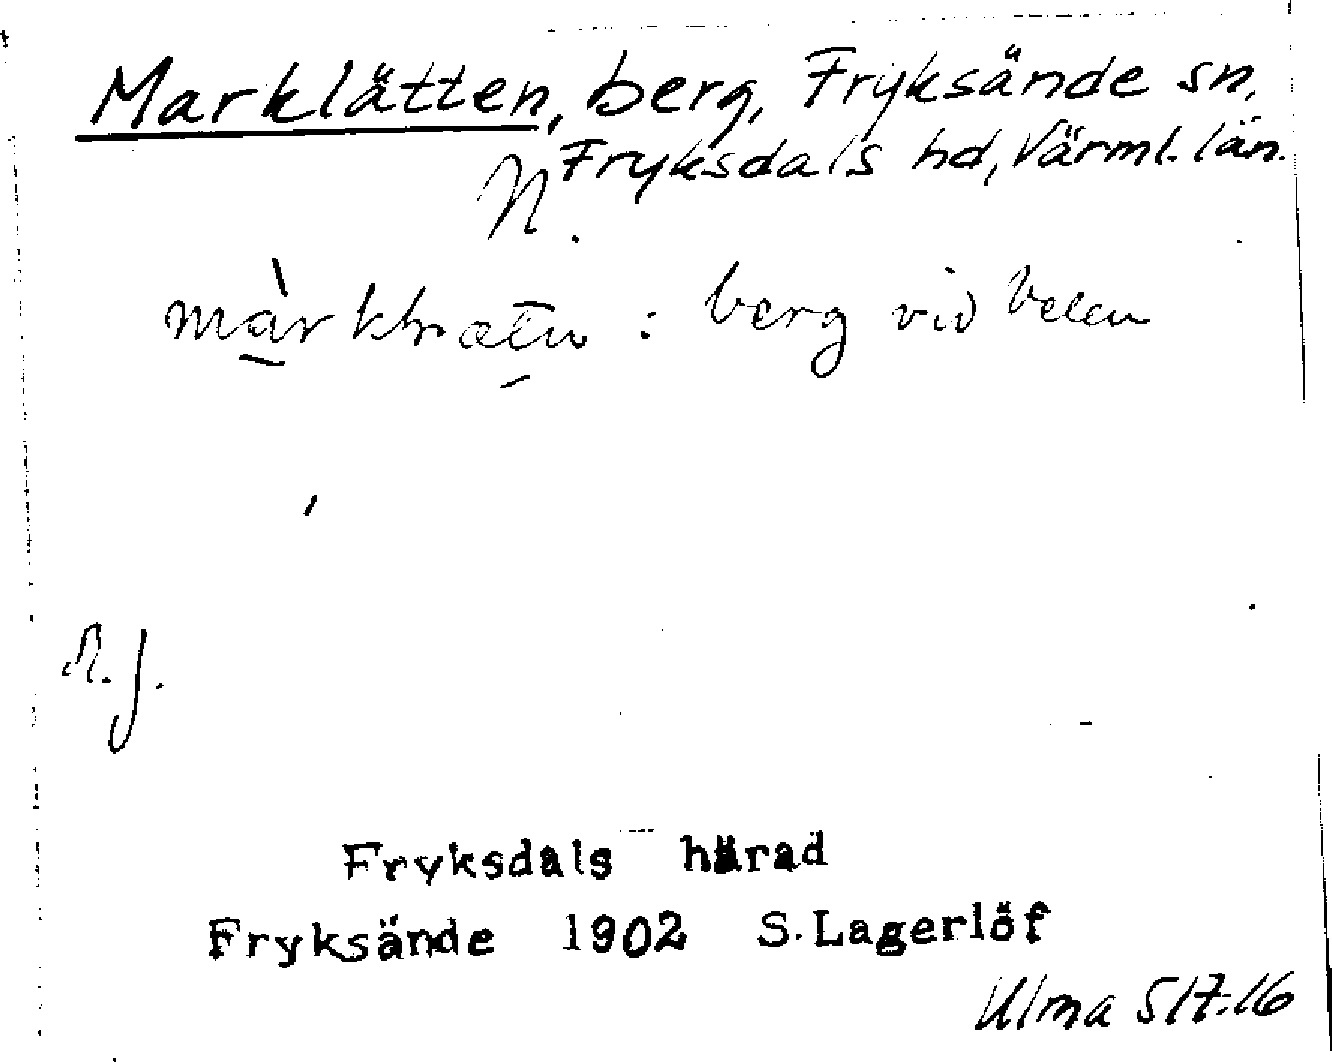 Marklätten, berg, Fryksände sn,
Fryksdals hd, Värml. län.
N.
: berg vid Velen
Fryksdals härad
Fryksände 1902 S. Lagerlöf
Ulma 517:16